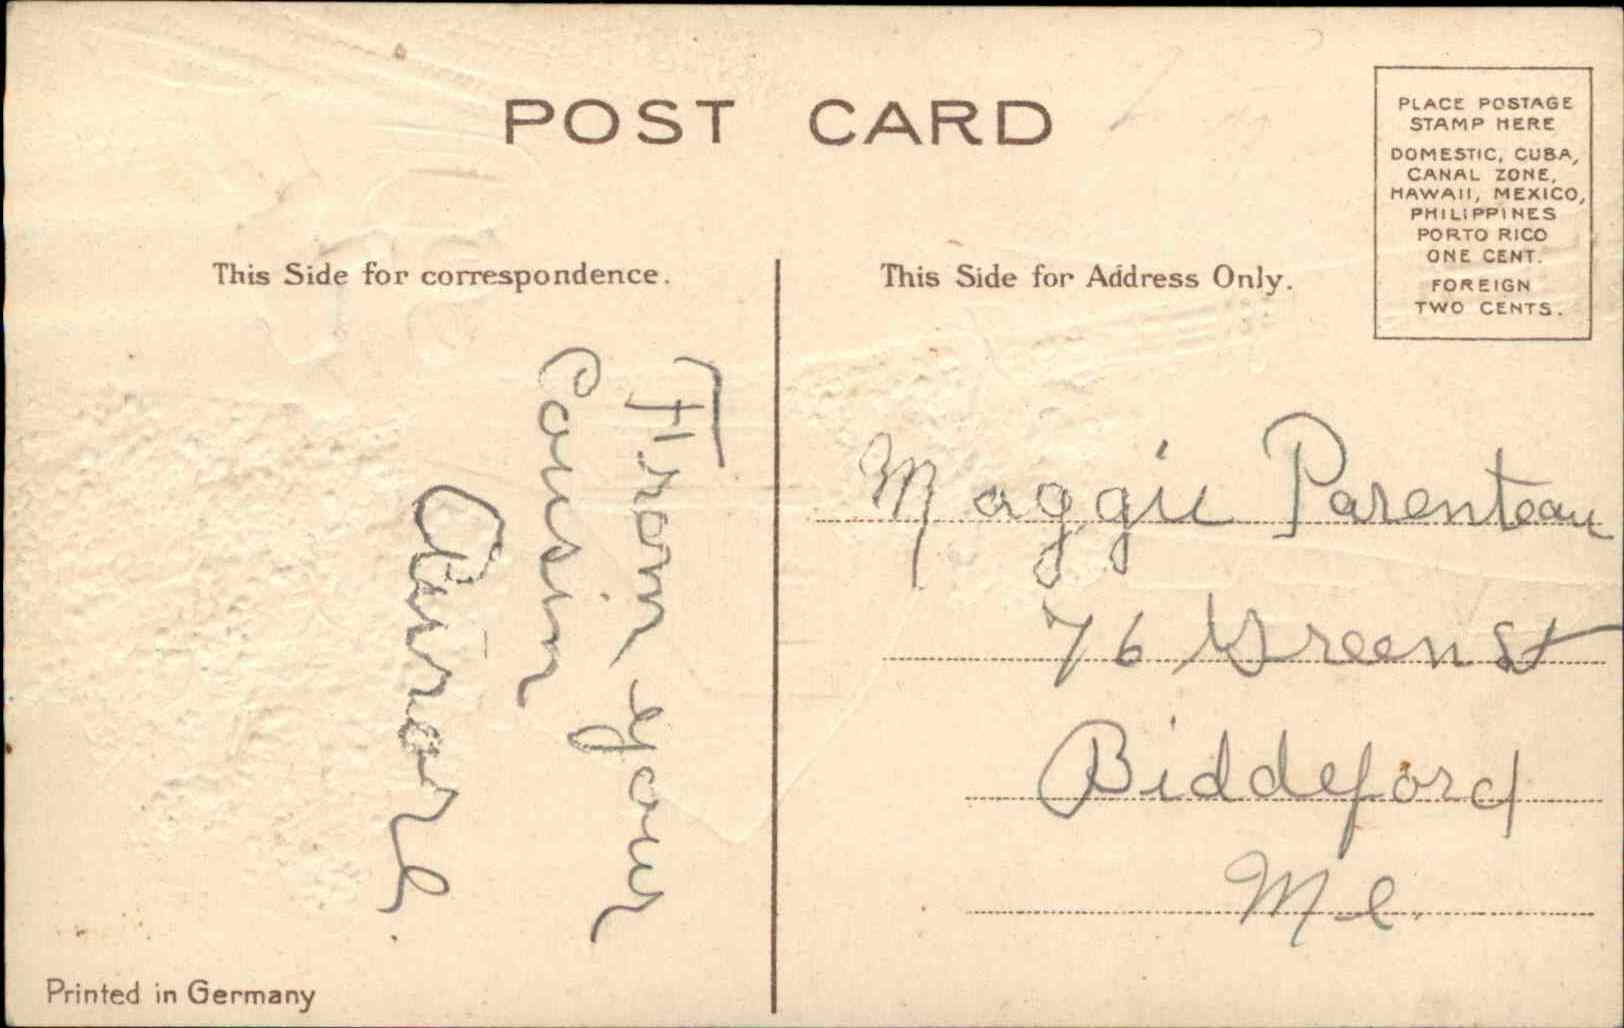 POST CARD
This Side for correspondence.
From your
Cousin
This Side for Address Only.
PLACE POSTAGE
STAMP HERE
DOMESTIC, CUBA,
CANAL ZONE,
HAWAII, MEXICO,
PHILIPPINES
PORTO RICO
ONE CENT.
FOREIGN
TWO CENTS.
Maggie Parenteau
76 Green St
Biddeford
Me.
Printed in Germany